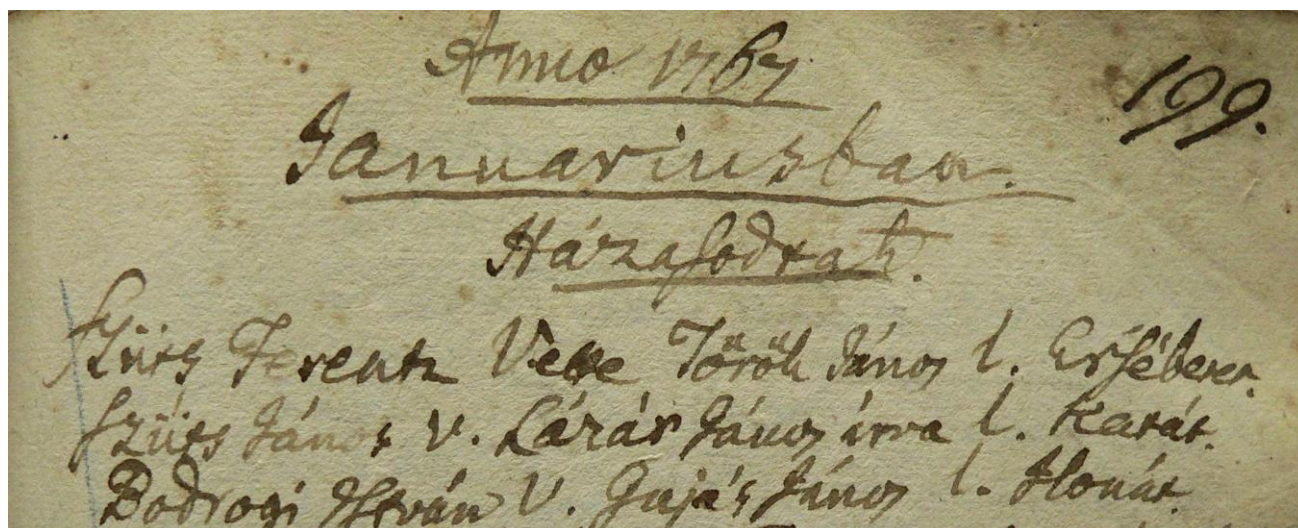 Anno 1767
199.
Januariusban.
Házasodtak.
Szüts Ferentz Vette Török János l. Ersébetet.
Szüts János v. Lázár János árva l. Katát.
Bodrogi István V. Gujás János l. Ilonát.